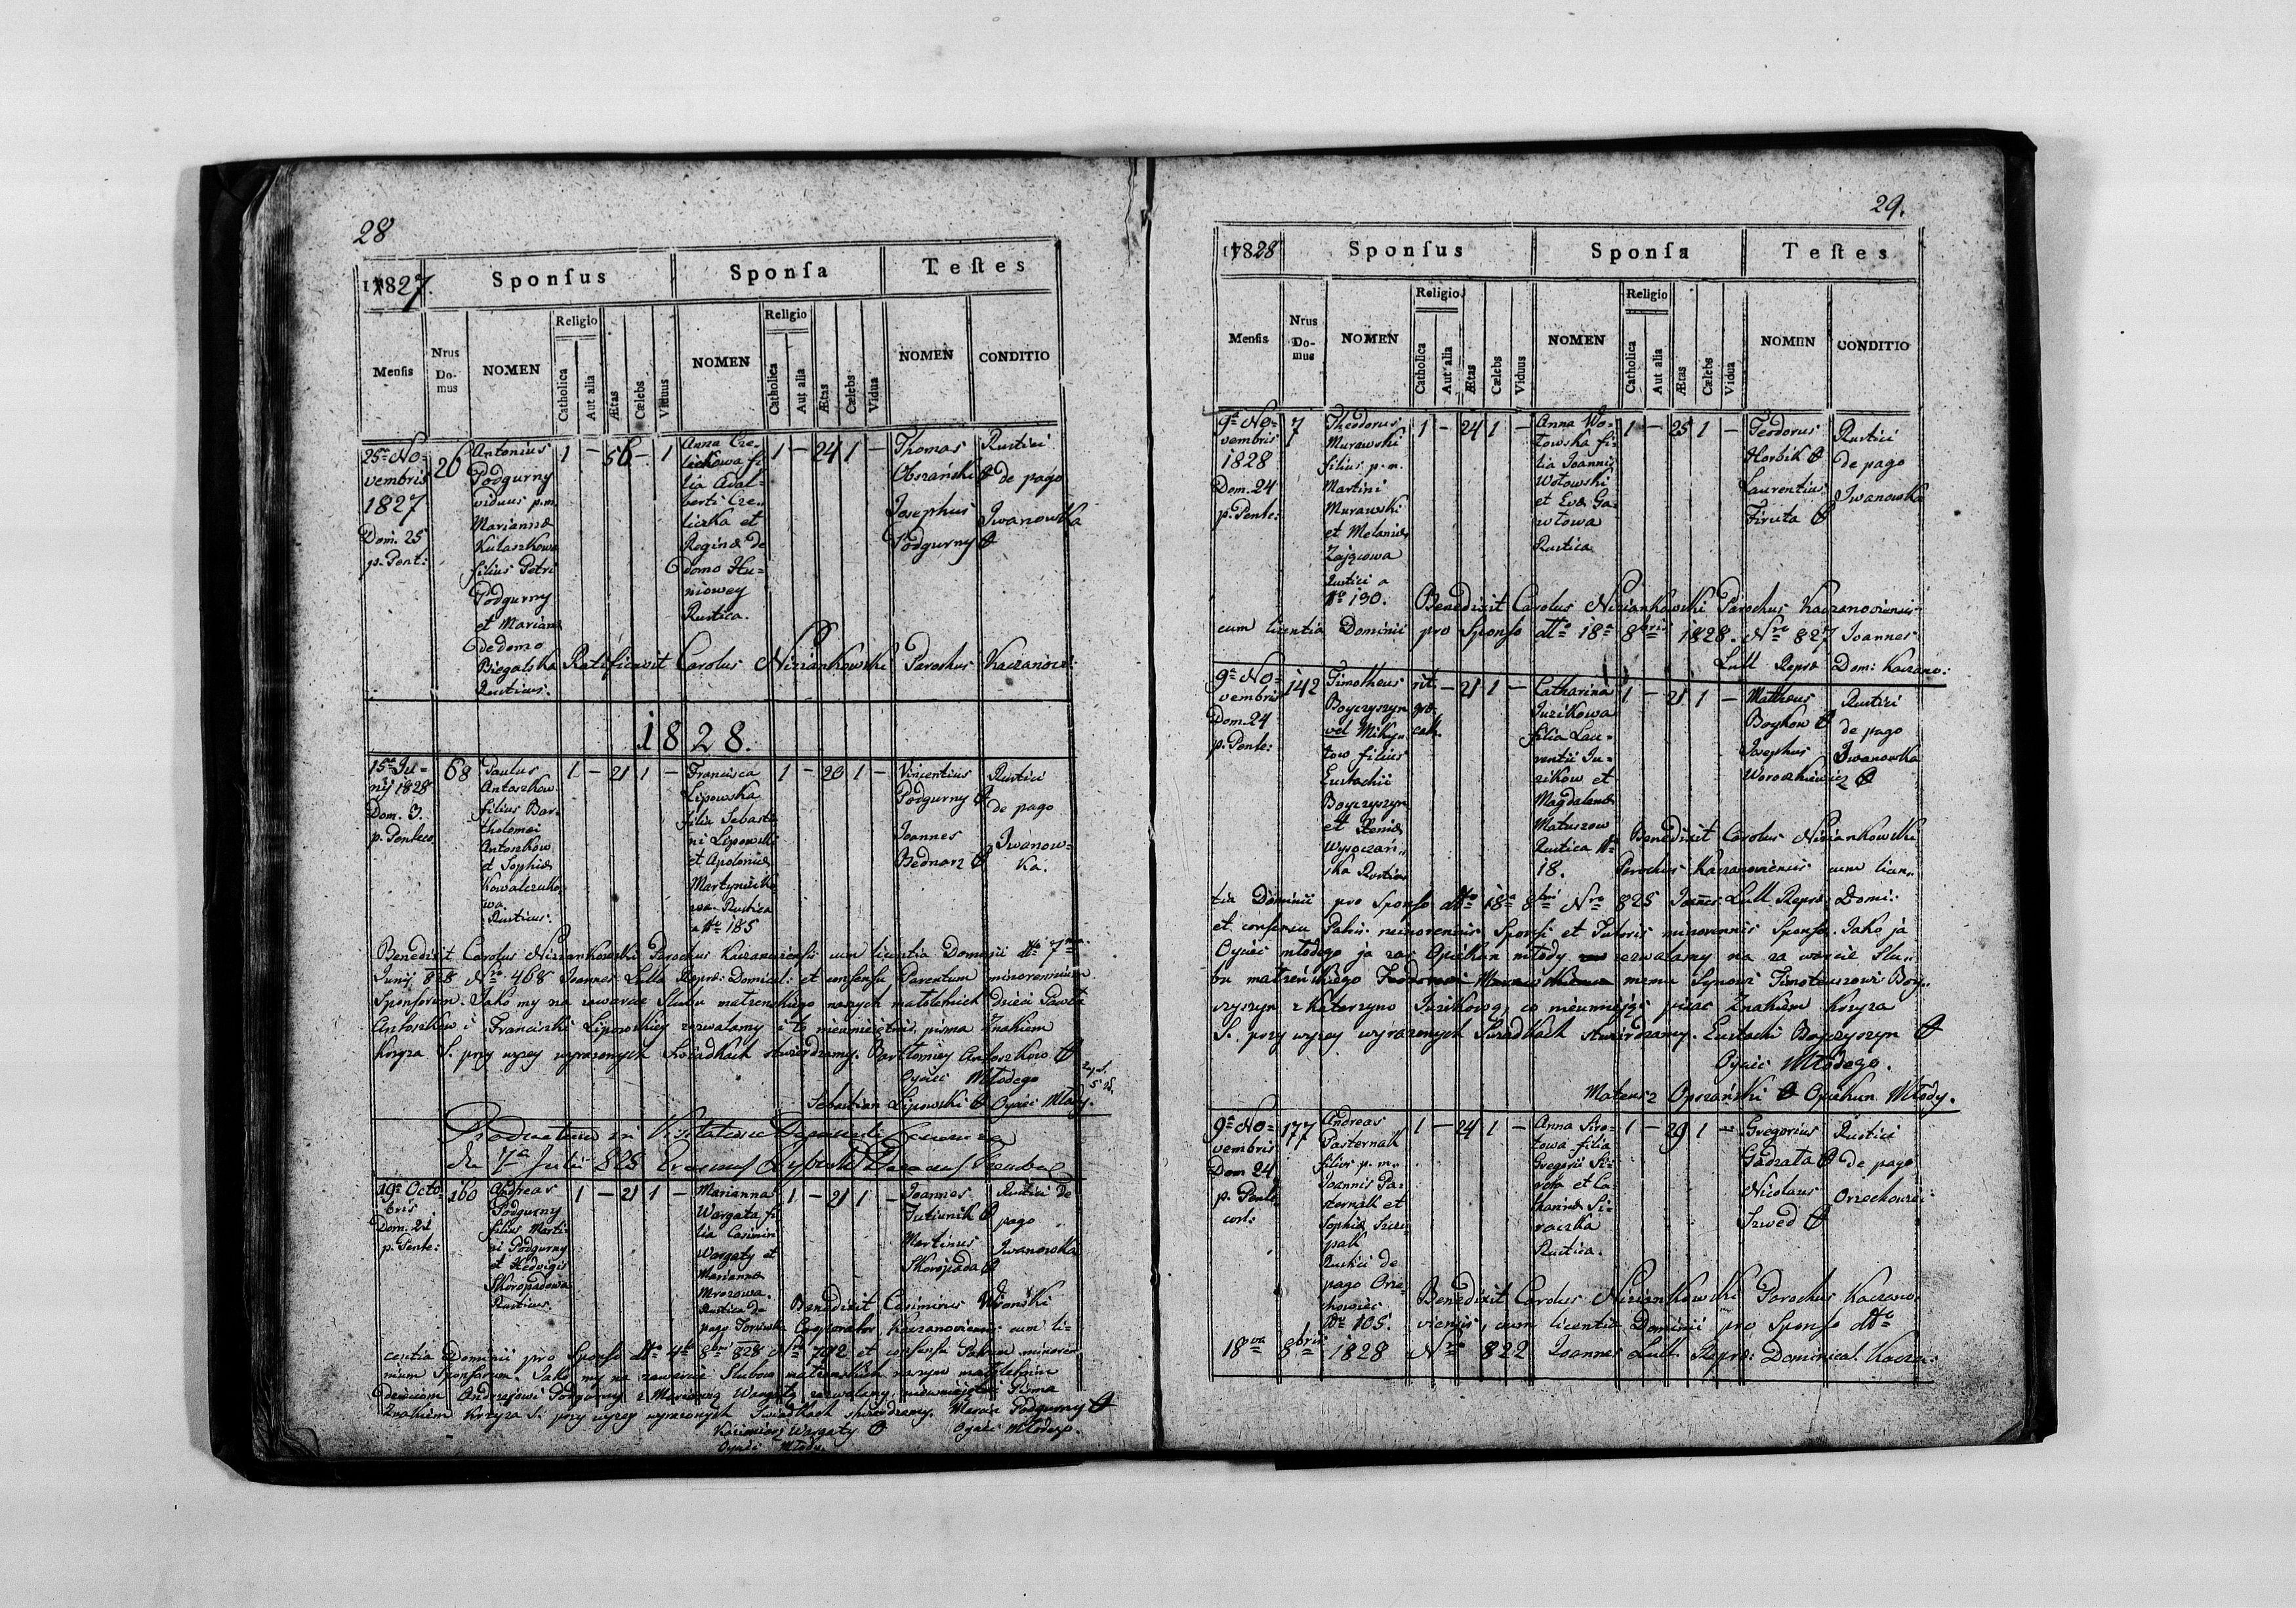 28
1827.
Sponſus
Sponſa
Teſtes
Menſis
Nrus Do- mus
NOMEN
Religio
Catholica
Aut alia
Ætas
Cælebs
Viduus
NOMEN
Religio
Catholica
Aut alia
Ætas
Cælebs
Vidua
NOMEN
CONDITIO
25ta No-
vembris
1827
Dom. 25
p. Pent:
26
Antonius
Podgurny
viduus p.m.
Mariannæ
filius Petri
Podgurny
et Mariannæ
de domo
Biegalska
Rusticus.
1 — 56 — 1
Anna Cze-
lickowa fi-
lia Adal-
berti Cze-
liczka et
Reginæ de
domo Hu-
niowey
Rustica.
1 — 24 1 —
Thomas
Obszański
Josephus
Podgurny
Rustici
de pago
Iwanowka
Ratificavit Carolus Niziankowski Parochus Kaczanovi:
1828.
15ta Ju-
nij 1828
Dom. 3.
p. Pentec
68
Paulus
Antoszkow
filius Bar-
tholomei
Antoszkow
et Sophiæ
Kowalczuko-
wa.
Rusticus.
1 — 21 1 —
Francisca
Lipowska
filia Sebasti-
ni Lipowski
et Apoloniæ
wa. Rustica
a No 185
1 — 20 1 —
Vincentius
Podgurny
Joannes
Bednarz
Rustici
de pago
Iwanow-
ka.
Benedixit Carolus Niziankowski Parochus Kaczanoviensis cum licentia Dominii dto 7ma
Junij 828 Nro 468 Joannes Lulla Repræ: Dominical: et consensu Parentum minorennium
Sponsorum. Jako my na zawarcie Slubu małzenskiego naszych małoletnich dzieci Pawła
Antoszkow i Franciszki Lipowskiey zezwalamy i to nieumiejętni pisma Znakiem
Krzyza S. przy wyzey wyrazonych Swiadkach stwierdzamy. Bartłomiey Antoszkow
Oyciec Młodego
Sebastian Lipowski Oyciec Młody.
Productum in Visitatione Decanali
die 7a Julii 828
19a Octo-
bris
Dom. 21
p. Pente:
160
Andreas
Podgurny
filius Marti-
ni Podgurny
et Hedvigis
Skoropadowa
Rusticus.
1 — 21 1 —
Marianna
Wargata fi-
lia Casimiri
Wargaty et
Mariannæ
Mrozowa.
Rustica de
pago
1 — 21 1 —
Joannes
Jutiunik
Martinus
Skoropada
Rustici de
pago
Iwanowka
Benedixit Casimirus Wronski
Cooperator Kaczanoviensis cum li-
centia Dominii pro Sponso dto 4ta 8bris 828 Nro 792 et consensu Patrum minoren-
nium Sponsorum. Jako my na zawarcie Slubow małzenskich naszym małoletnim
dzieciom Andrzejowi Podgurny z Marianną Wargatą zezwalamy, nieumiejętni Pisma
Znakiem Krzyza S. przy wyzey wyrazonych Swiadkach stwierdzamy. Marcin Podgurny
Kazimierz Wargaty Oyciec Młodego.
Oyciec Młody.
29.
1828
Sponſus
Sponſa
Teſtes
Menſis
Nrus Do- mus
NOMEN
Religio
Catholica
Aut alia
Ætas
Cælebs
Viduus
NOMEN
Religio
Catholica
Aut alia
Ætas
Cælebs
Vidua
NOMEN
CONDITIO
9a No-
vembris
1828
Dom. 24
p. Pente:
7
Theodorus
Murawski
filius p. m.
Martini
Murawski
et Melaniæ
Zającowa
Rustici a
No 130.
1 — 24 1 —
Anna Wo-
towska fi-
lia Joannis
Wotowski
et Evæ Ga-
wtowa
Rustica
1 — 25 1 —
Teodorus
Horbik
Laurentius
Firuta
Rustici
de pago
Iwanowka
Benedixit Carolus Niziankowski Parochus Kaczanoviensis
cum licentia Dominii pro Sponso dtto 18a 8bris 1828. Nro 827 Joannes
Lull Repræ Dom: Kaczano:
9a No-
vembris
Dom. 24
p. Pente:
142
Timotheus
Boyczyszyn
vel Miky-
tow filius
Eustachii
Boyczyszyn
et Xeniæ
Wysoczań-
ska Rusticus
rit.
græ.
cath.
— 21 1 —
Catharina
Juzikowa
filia Lau-
rentii Ju-
zikow et
Magdalenæ
Matuszow
Rustica No
18.
1 — 21 1 —
Mattheus
Boykow
Josephus
Woroszkiewicz
Rustici
de pago
Iwanowka
Benedixit Carolus Niziankowski
Parochus Kaczanoviensis cum licen-
tia Dominii pro Sponso dtto 18a 8bris Nro 825 Joannes Lull Repræ: Domi:
et consensu Patris minorennis Sponsi et Tutoris minorennis Sponsæ. Jako ja
Oyciec młodego ja zas Opiekun młody zezwalamy na zawarcie Slu-
bu małzeńskiego memu Synowi Timoteuszowi Boy-
czyszyn z Katarzyną Juzikową, co nieumiejąc pisac Znakiem Krzyza
S. przy wyzey wyrazonych Swiadkach stwierdzamy. Eustachi Boyczyszyn
Oyciec Młodego.
Mateusz Opszański Opiekun Młody.
9a No-
vembris
Dom 24
p. Pente
cost:
177
Andreas
Pasternak
filius p. m.
Joannis Pa-
sternak et
Sophiæ Szcze-
pak
Rustici de
pago Orze-
chowiec
No 105.
1 — 24 1 —
Anna Siro-
towa filia
Gregorii Si-
rota et Ca-
tharinæ Si-
roczka
Rustica.
1 — 29 1 —
Gregorius
Gadzata
Nicolaus
Szwed
Rustici
de pago
Orzechowiec:
Benedixit Carolus Niziankowski Parochus Kaczano-
viensis, cum licentia Dominii pro Sponso dtto
18va 8bris 1828 Nro 822 Joannes Lull Repræ: Dominical. Kacza: